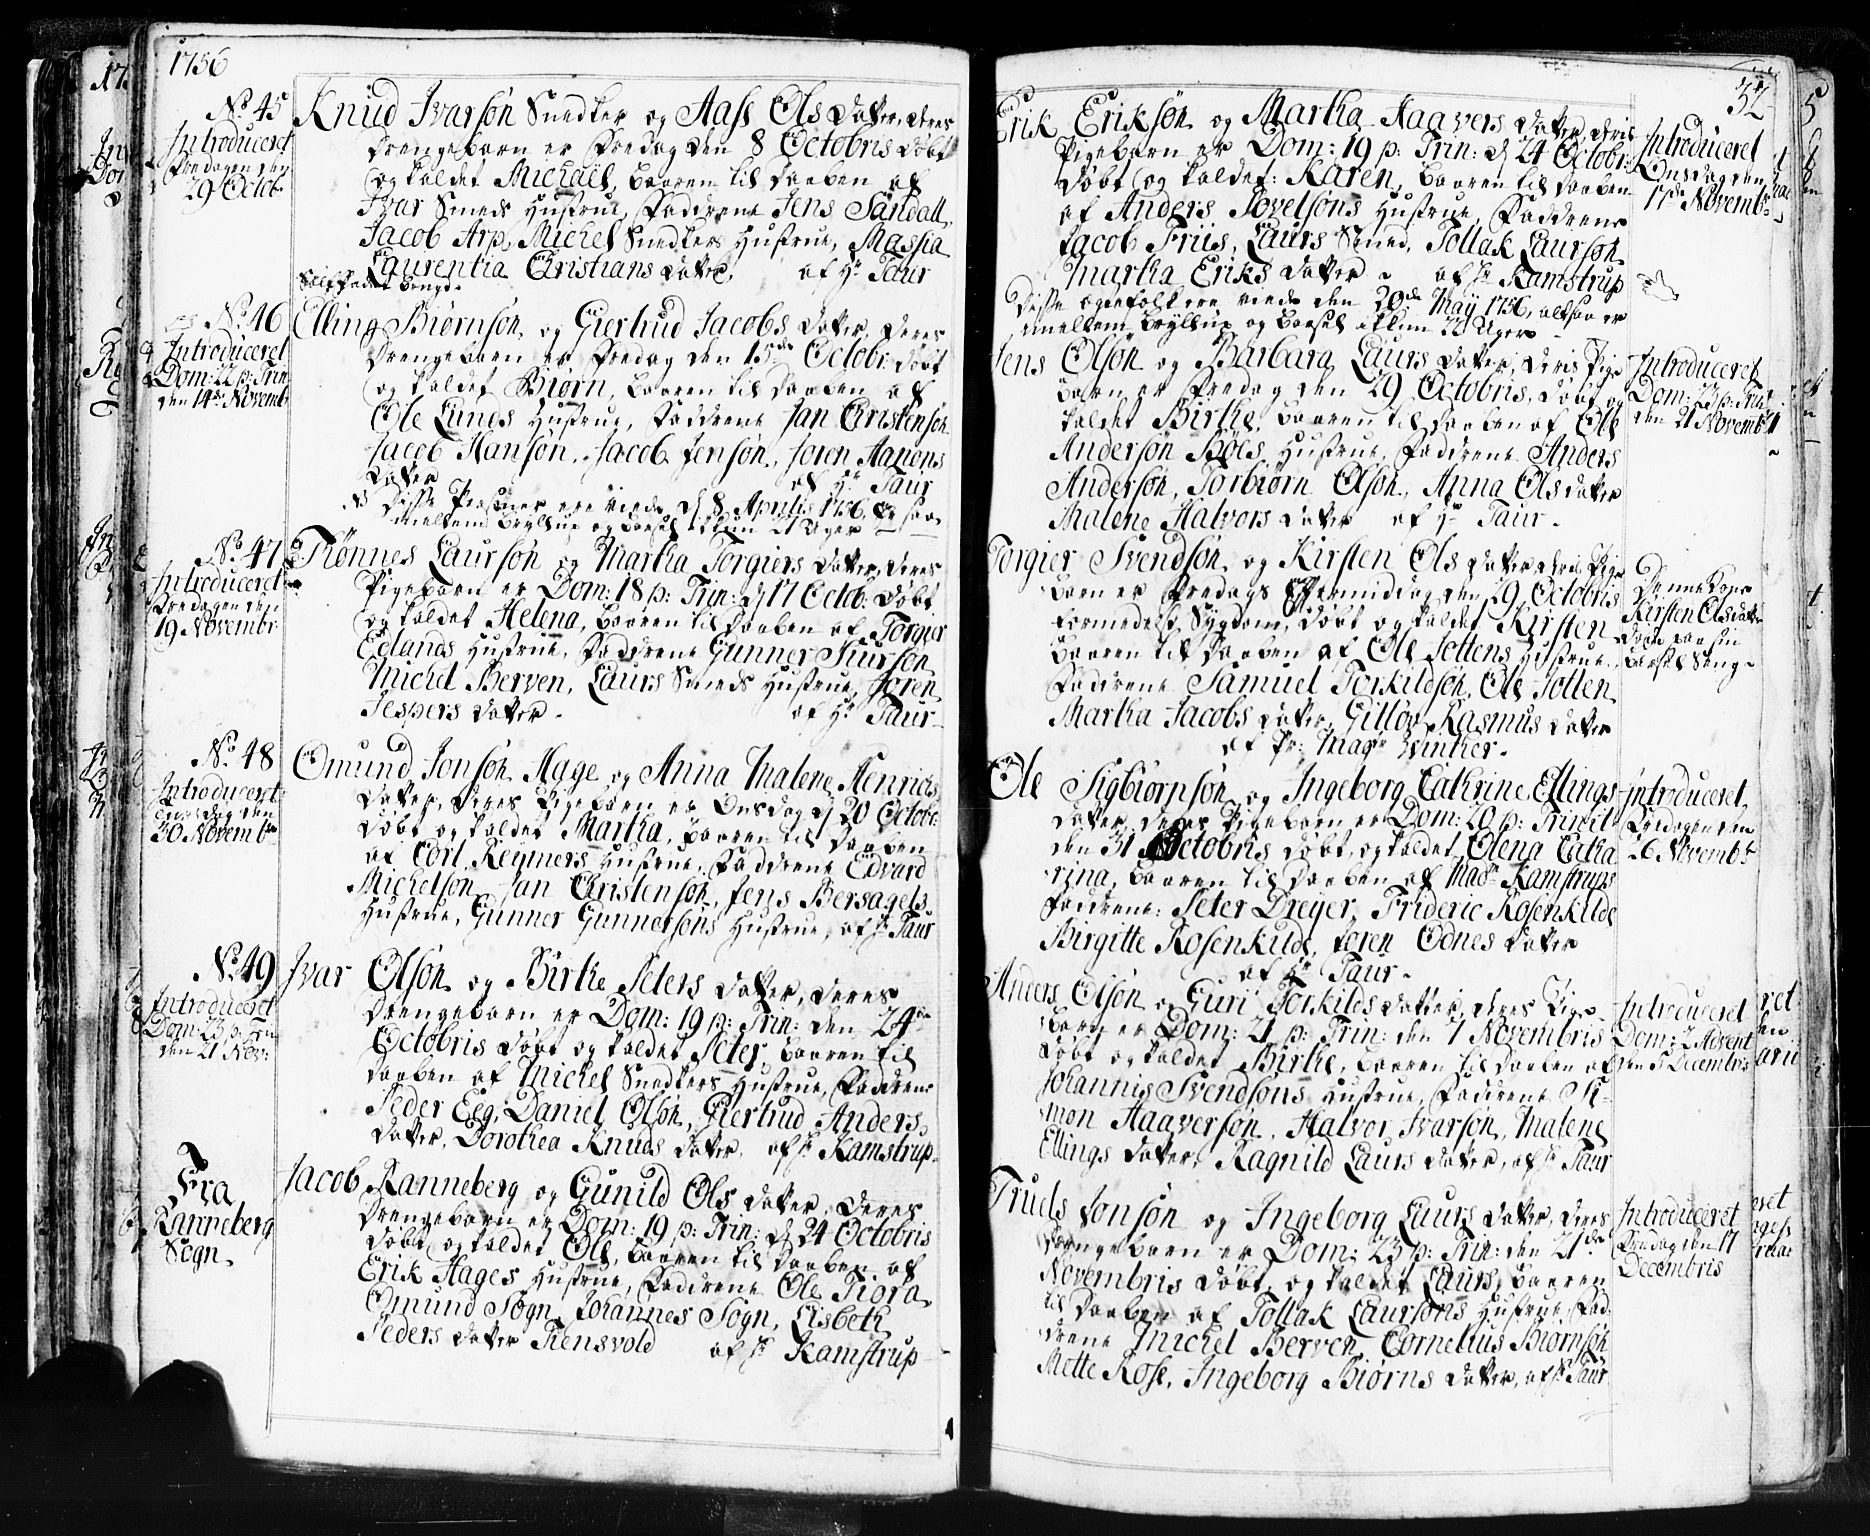 1756
No 45
Introduceret
Fredagen den
29 Octob:
Knud Ivarsøn Snedker og Aase Ols Datter, deres
Drengebarn er Fredag den 8 Octobris døbt
og kaldet Michaël, baaren til Daaben af
Ivar Smeds Hustrue, Faddrene Jens Sandall
Jacob Arp, Michel Snedkers Hustrue, Massia
Laurentia Christians Datter, af Hr Taur
No 46
Introduceret
Dom: 22 p: Trin
den 14de Novemb:
Elling Biørnsøn og Giertrud Jacobs Datter, deres
Drengebarn er Fredag den 15de Octobr: døbt
og kaldet Biørn, baaren til Daaben af
Ole Lunds Hustrue, Faddrene Jan Christensøn
Jacob Hansøn, Jacob Jensøn, Søren Aanons
Datter af Hr Taur
Disse Personer ere viede d 8 Aprilis 1756, er saa
mellem Bryllup og Barsel ikkun 27 Uger
No 47
Introduceret
Fredagen den
19 Novembr:
Tønnes Laursøn og Martha Torgiers Datter, deres
Pigebarn er Dom: 18 p: Trin: d 17 Octob: døbt
og kaldet Helena, baaren til Daaben af Torgier
Edlands Hustrue, Faddrene Gunner Siursøn
Michel Berven, Laurs Smeds Hustrue, Søren
Jespers Datter. af Hr Taur
No 48
Introduceret
Tirsdag den
30 Novembr
Omund Jonsøn Hage og Anna Malene Henrichs
Datter, deres Pigebarn er Onsdag d 20 Octobr:
døbt og kaldet Martha, baaren til Daaben
af Corl. Reymers Hustrue, Faddrene Edvard
Michelsøn, Jan Christensøn, Jens Bersagels
Hustrue, Gunner Gunnersøns Hustrue, af Hr Taur
No 49
Introduceret
Dom: 23 p: Trin
den 21 Nov:
Ivar Olsøn og Birthe Peters Datter, deres
Drengebarn er Dom: 19 p: Trin: den 24de
Octobris døbt og kaldet Peter, baaren til
Daaben af Michel Snedkers Hustrue, Faddrene
Peder Eeg, Daniel Olsøn, Giertrud Anders
Datter, Dorothea Knuds Datter, af Hr Kamstrup
Fra
Ranneberg
Sogn.
Jacob Ranneberg og Gunild Ols Datter, deres
Drengebarn er Dom: 19 p: Trin: d 24 Octobris
døbt og kaldet Ole, baaren til Daaben af
Erik Hages Hustrue, Faddrene Ole Tiora
Omund Sogn, Johannes Sogn, Lisbeth
Peders Datter Rensvold af Hr Kamstrup
32
Erik Eriksøn og Martha Haavers Datter, deris
Pigebarn er Dom: 19 p: Trin: d 24 Octobr:
døbt og kaldet: Karen, baaren til Daaben
af Anders Povelsøns Hustrue, Faddrene
Jacob Friis, Laurs Smed, Tollak Laursøn
Martha Eriks Datter af Hr Kamstrup
Disse ægtefolk ere viede den 20de May 1756, altsaa er
imellem Bryllup og Barsel ikkun 22 Uger
Introduceret
Onsdag den
17de Novembr
Jens Olsøn og Barbara Laurs Datter, deris Pige
barn er Fredag den 29 Octobris, døbt og
kaldet Birthe, baaren til Daaben af Ole
Andersøn Bøes Hustrue, Faddrene Anders
Andersøn, Torbiørn Olsøn, Anna Ols Datter
Malene Halvors Datter af Hr Taur
Introduceret
Dom: 23 p: Trin:
den 21 Novembr
Torgier Svendsøn og Kirsten Ols Datter deris Pige
barn er Fredags Eftermiddag den 29 Octobris
formedelst Sygdom, døbt og kaldet Kirsten
baaren til Daaben af Ole Jottens Hustrue,
Faddrene Samuel Torkildsøn, Ole Jotten
Martha Jacobs Datter, Gilløv Rasmus Datter
af Pr: Magr Winther
Denne Kone
Kirsten Olsdatter
døde paa sin
Barsel Seng
Ole Sigbiørnsøn og Ingeborg Cathrine Ellings
Datter, deres Pigebarn er Dom: 20 p: Trinit:
den 31 Octobris døbt, og kaldet Olena Catha
rina, baaren til Daaben af Madm Kamstrups
Faddrene: Peter Dreyer, Frideric Rosenkilde
Birgitte Rosenkilde, Søren Odnes Datter
af Hr Taur
Introduceret
Fredagen den
26 Novembr
Anders Olsøn og Guri Torkilds Datter, deres Pige
barn er Dom: 21 p: Trin: den 7 Novembris
døbt og kaldet Birthe, baaren til Daaben af
Johannis Svendsøns Hustrue, Faddrene Si-
mon Haaversøn, Halvor Ivarsøn, Malene
Ellings Datter, Ragnild Laurs Datter, af Hr Taur
Introduceret
Dom: 2 Advent
den 5 Decembris
Truels Jonsøn og Ingeborg Laurs Datter, deres
Drengebarn er Dom: 23 p: Trin: den 21de
Novembris døbt, og kaldet Laurs, baaren
til Daaben af Tollak Laursøns Hustrue, Fad-
drene Michel Berven, Cornelius Biørnsøn
Mette Rose, Ingeborg Biørns Datter, af Hr Taur
Introduceret
Fredag den 17
Decembris